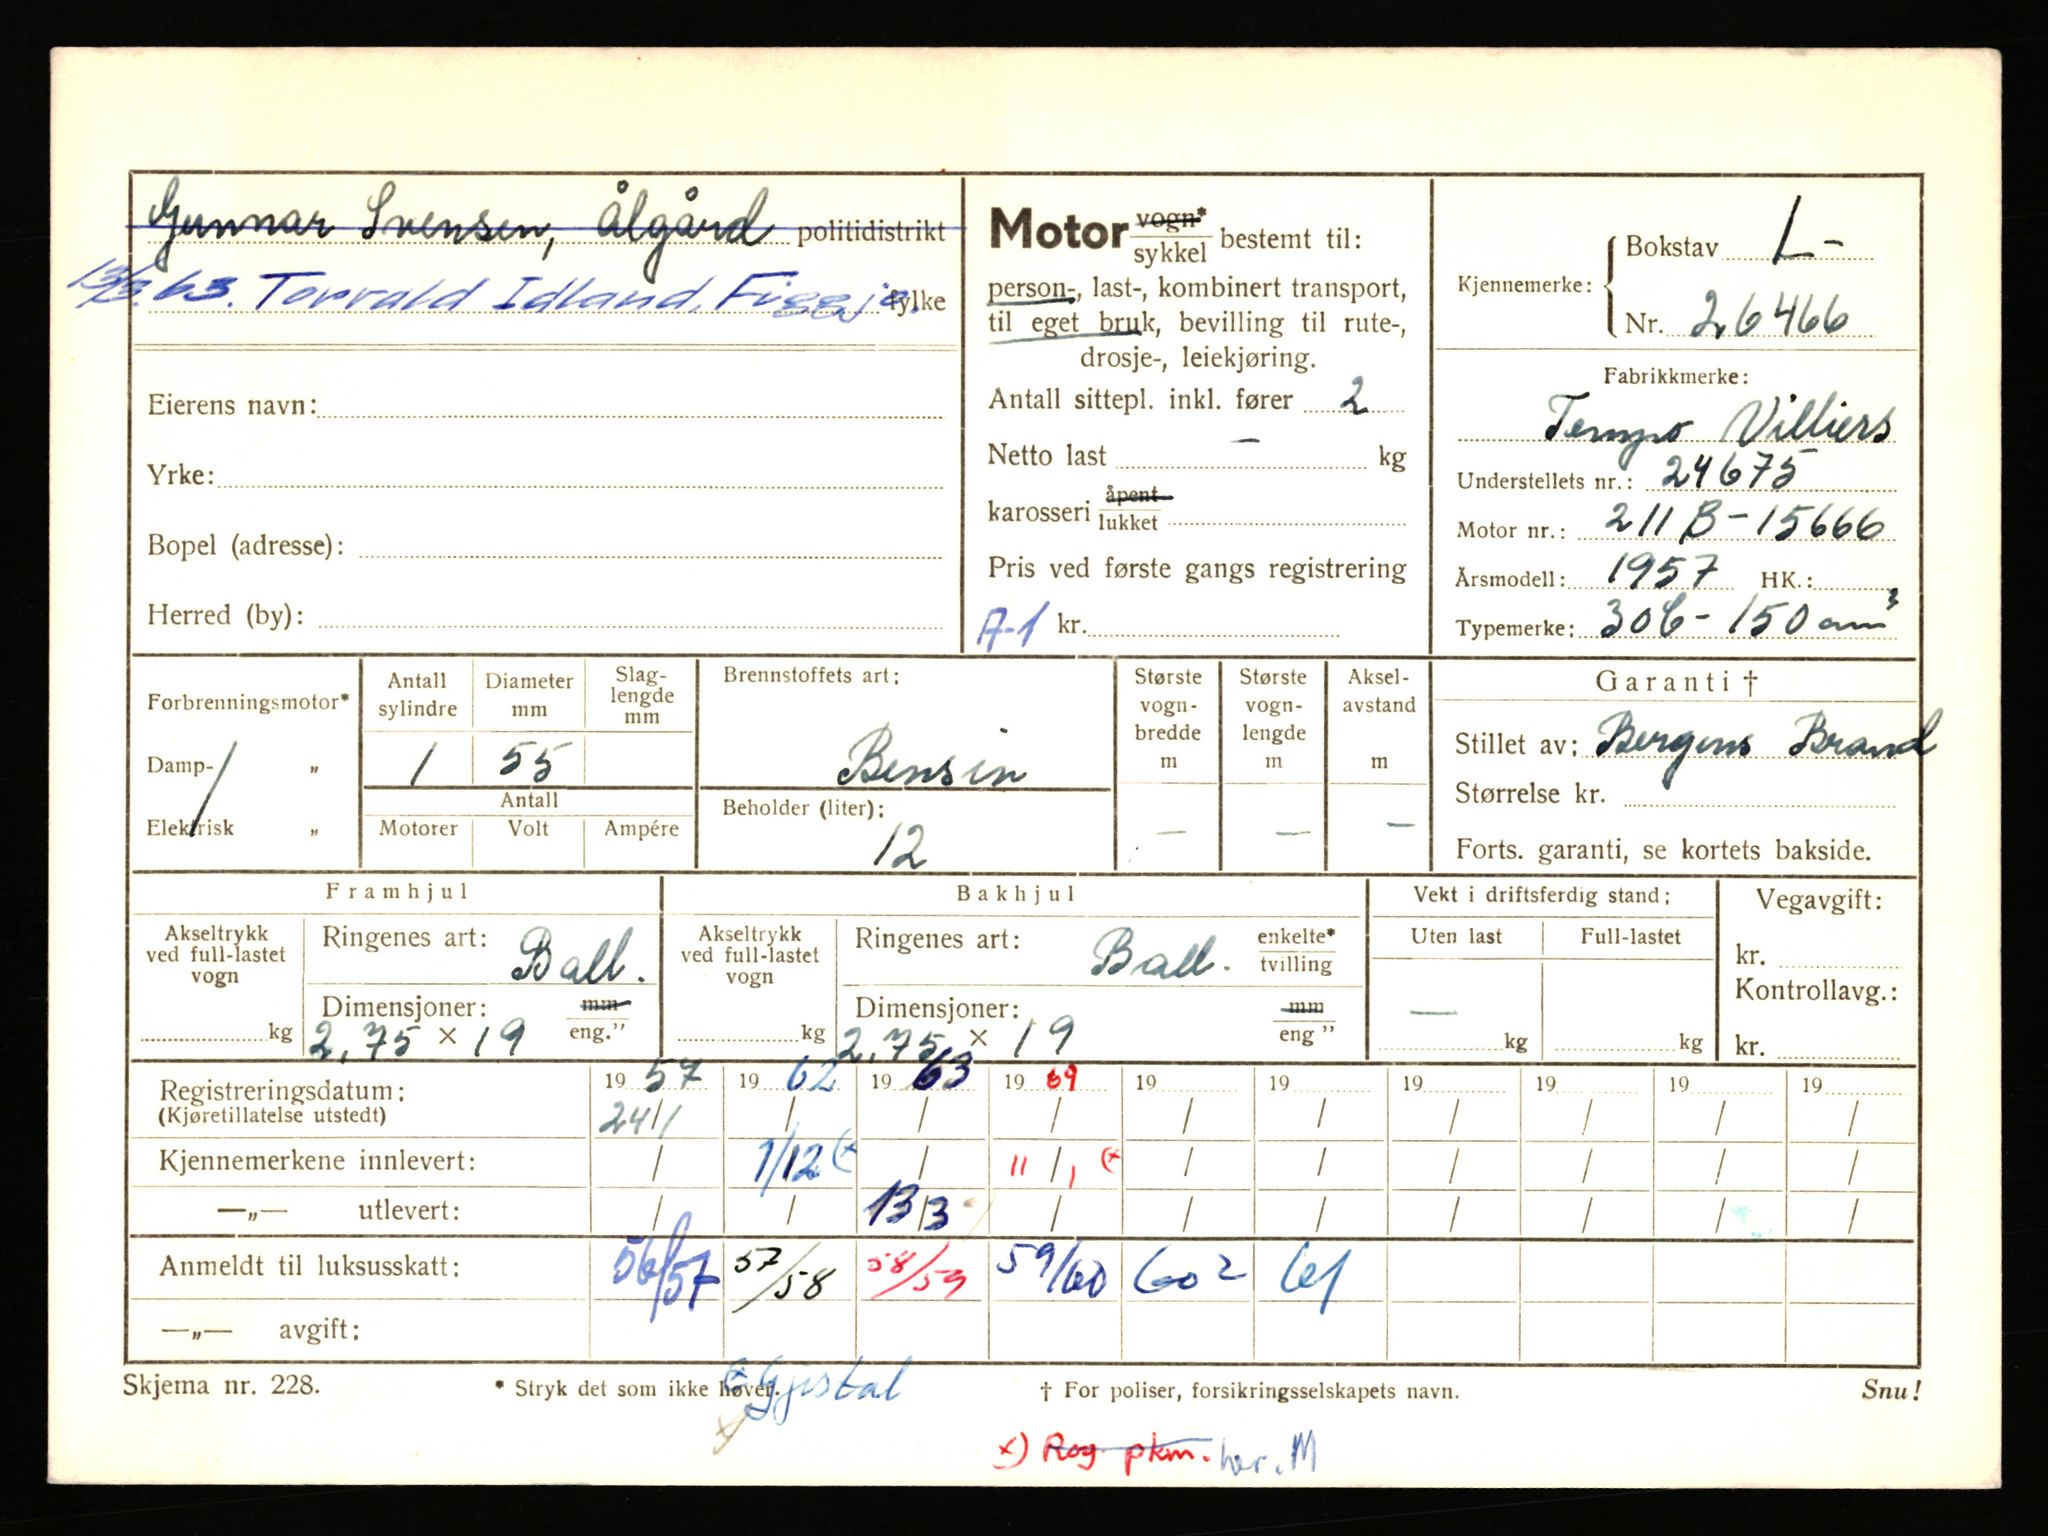 Gunnar Svensen, Ålgård politidistrikt
13/3.63. Torvald Idland, Figgjo. fylke
Eierens navn:
Yrke:
Bopel (adresse):
Herred (by):
Motor vogn* sykkel bestemt til:
person-, last-, kombinert transport,
til eget bruk, bevilling til rute-,
drosje-, leiekjøring.
Antall sittepl. inkl. fører 2
Netto last — kg
karosseri åpent lukket
Pris ved første gangs registrering
A-1 kr.
Kjennemerke: Bokstav L-
Nr. 26466
Fabrikkmerke:
Tempo Villiers
Understellets nr.: 24675
Motor nr.: 211 B-15666
Årsmodell: 1957 HK.:
Typemerke: 306-150 cm³
Forbrenningsmotor*
Damp- „
Elektrisk „
Antall sylindre
1
Diameter mm
55
Slag-
lengde
mm
Antall
Motorer Volt Ampére
Brennstoffets art:
Bensin
Beholder (liter):
12
Største
vogn-
bredde
m
—
Største
vogn-
lengde
m
—
Aksel-
avstand
m
—
Garanti †
Stillet av: Bergens Brand
Størrelse kr.
Forts. garanti, se kortets bakside.
Framhjul
Akseltrykk
ved full-lastet
vogn
kg
Ringenes art: Ball.
Dimensjoner: mm eng."
2,75 × 19
Bakhjul
Akseltrykk
ved full-lastet
vogn
kg
Ringenes art: Ball. enkelte* tvilling
Dimensjoner: mm eng"
2,75 × 19
Vekt i driftsferdig stand:
Uten last Full-lastet
— kg kg
Vegavgift:
kr.
Kontrollavg.:
kr.
Registreringsdatum: 19 57 19 62 19 63 19 69 19 19 19 19 19 19
(Kjøretillatelse utstedt) 24/1 / / / / / / / / /
Kjennemerkene innlevert: / 1/12 (× / 11/1 (× / / / / / /
—„— utlevert: / / 13/3 / / / / / / /
Anmeldt til luksusskatt: 56/57 57/58 58/59 59/60 60 2 61
—„— avgift:
Skjema nr. 228.
* Stryk det som ikke høver.
Gjestal
† For poliser, forsikringsselskapets navn.
Snu!
×) Rog. pkm. her. M